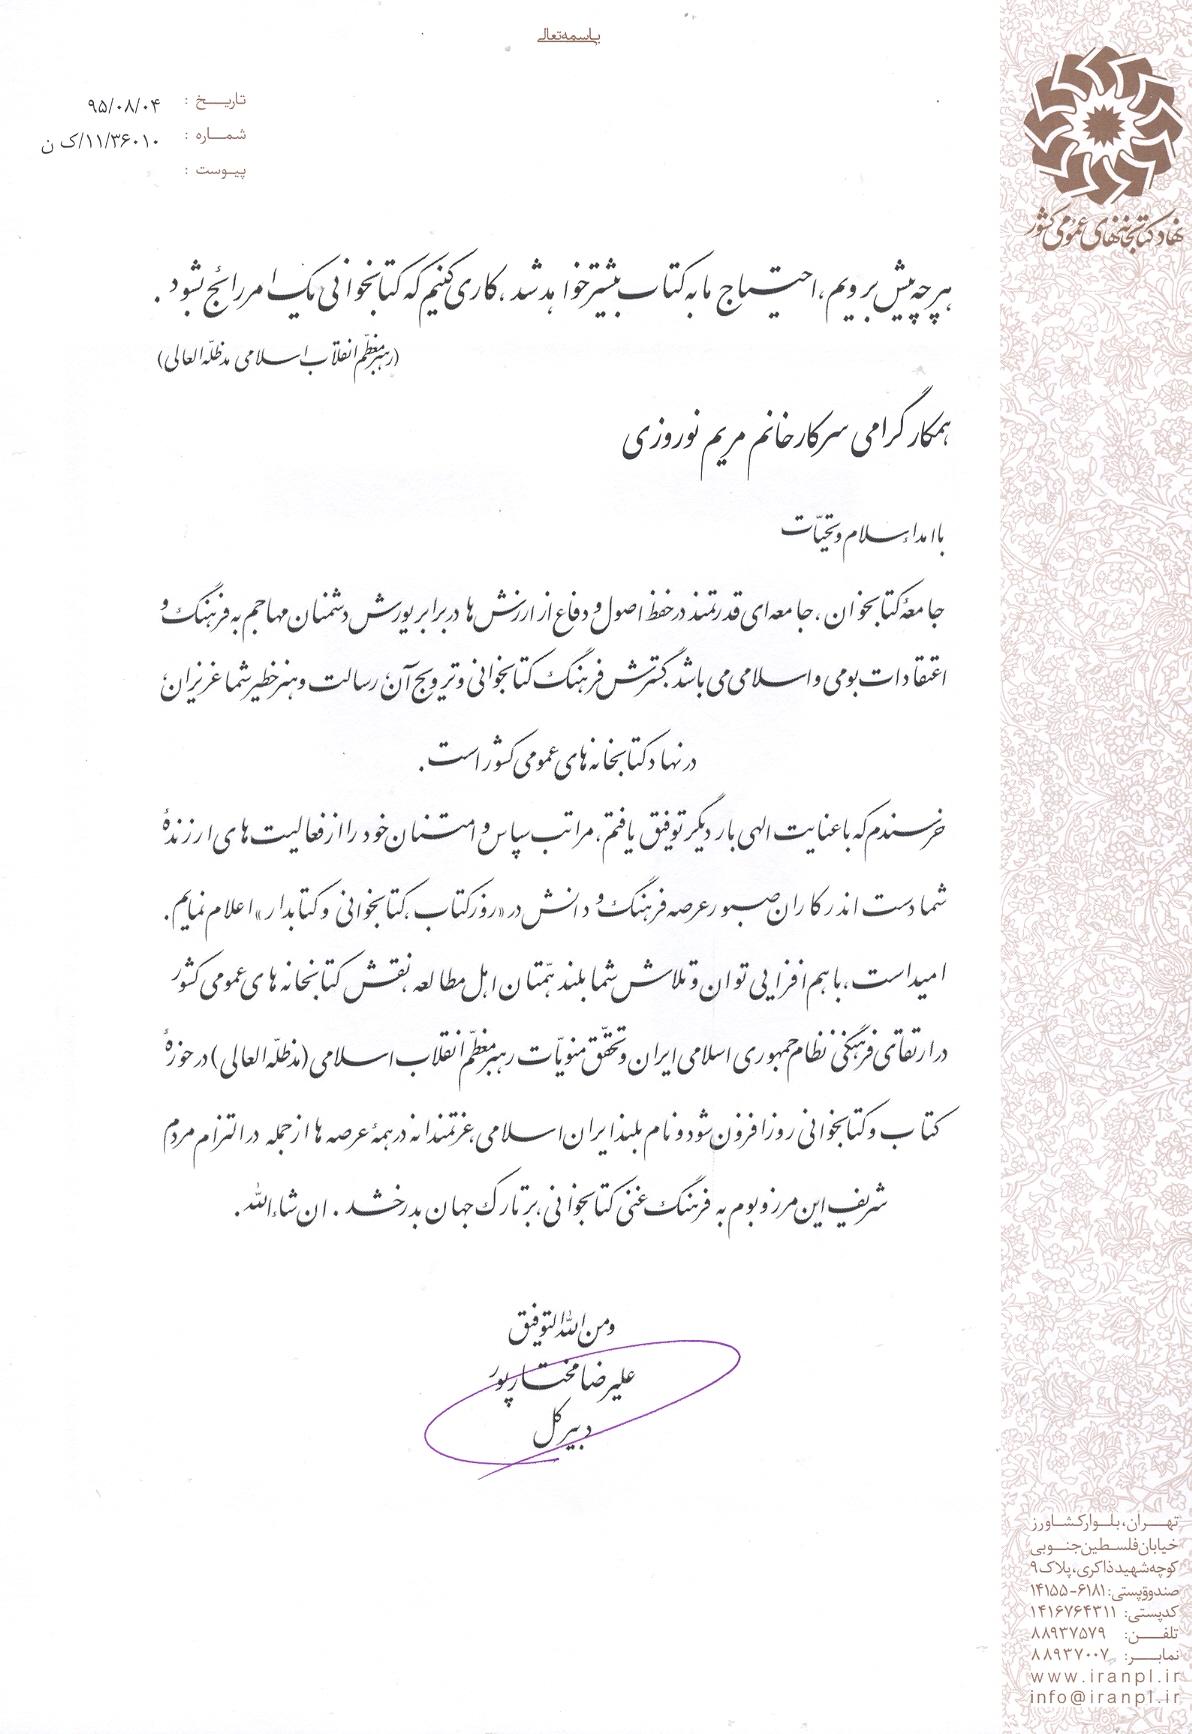 باسمه‌تعالی
تاریخ : ۹۵/۰۸/۰۴
شماره : ۱۱/۳۶۰۱۰/ک ن
پیوست :
نهاد کتابخانه‌های عمومی کشور
هر چه پیش برویم، احتیاج ما به کتاب بیشتر خواهد شد، کاری کنیم که کتابخوانی یک امر رائج شود.
(رهبر معظّم انقلاب اسلامی مدظلّه العالی)
همکار گرامی سرکار خانم مریم نوروزی
با اهداء سلام و تحیّات
جامعهٔ کتابخوان، جامعه‌ای قدرتمند در حفظ اصول و دفاع از ارزش‌ها در برابر یورش دشمنان مهاجم به فرهنگ و
اعتقادات بومی و اسلامی می باشد. گسترش فرهنگ کتابخوانی و ترویج آن، رسالت و هنر خطیر شما عزیزان،
در نهاد کتابخانه های عمومی کشور است.
خرسندم که با عنایت الهی بار دیگر توفیق یافتم، مراتب سپاس و امتنان خود را از فعالیت های ارزندهٔ
شما دست اندرکاران صبور عرصه فرهنگ و دانش در «روز کتاب، کتابخوانی و کتابدار» اعلام نمایم.
امید است، با هم افزایی توان و تلاش شما بلند همّتان اهل مطالعه، نقش کتابخانه های عمومی کشور
در ارتقای فرهنگی نظام جمهوری اسلامی ایران و تحقّق منویّات رهبر معظّم انقلاب اسلامی (مدظلّه العالی) در حوزهٔ
کتاب و کتابخوانی روز افزون شود و نام بلند ایران اسلامی، عزتمندانه در همهٔ عرصه ها از جمله در التزام مردم
شریف این مرز و بوم به فرهنگ غنی کتابخوانی، بر تارک جهان بدرخشد. ان شاءالله.
ومن الله التوفیق
علیرضا مختارپور
دبیرکل
تهران، بلوار کشاورز
خیابان فلسطین جنوبی
کوچه شهید ذاکری، پلاک ۹
صندوق پستی: ۶۱۸۱-۱۴۱۵۵
کدپستی: ۱۴۱۶۷۶۴۳۱۱
تلفن: ۸۸۹۳۷۵۷۹
نمابر: ۸۸۹۳۷۰۰۷
www.iranpl.ir
info@iranpl.ir